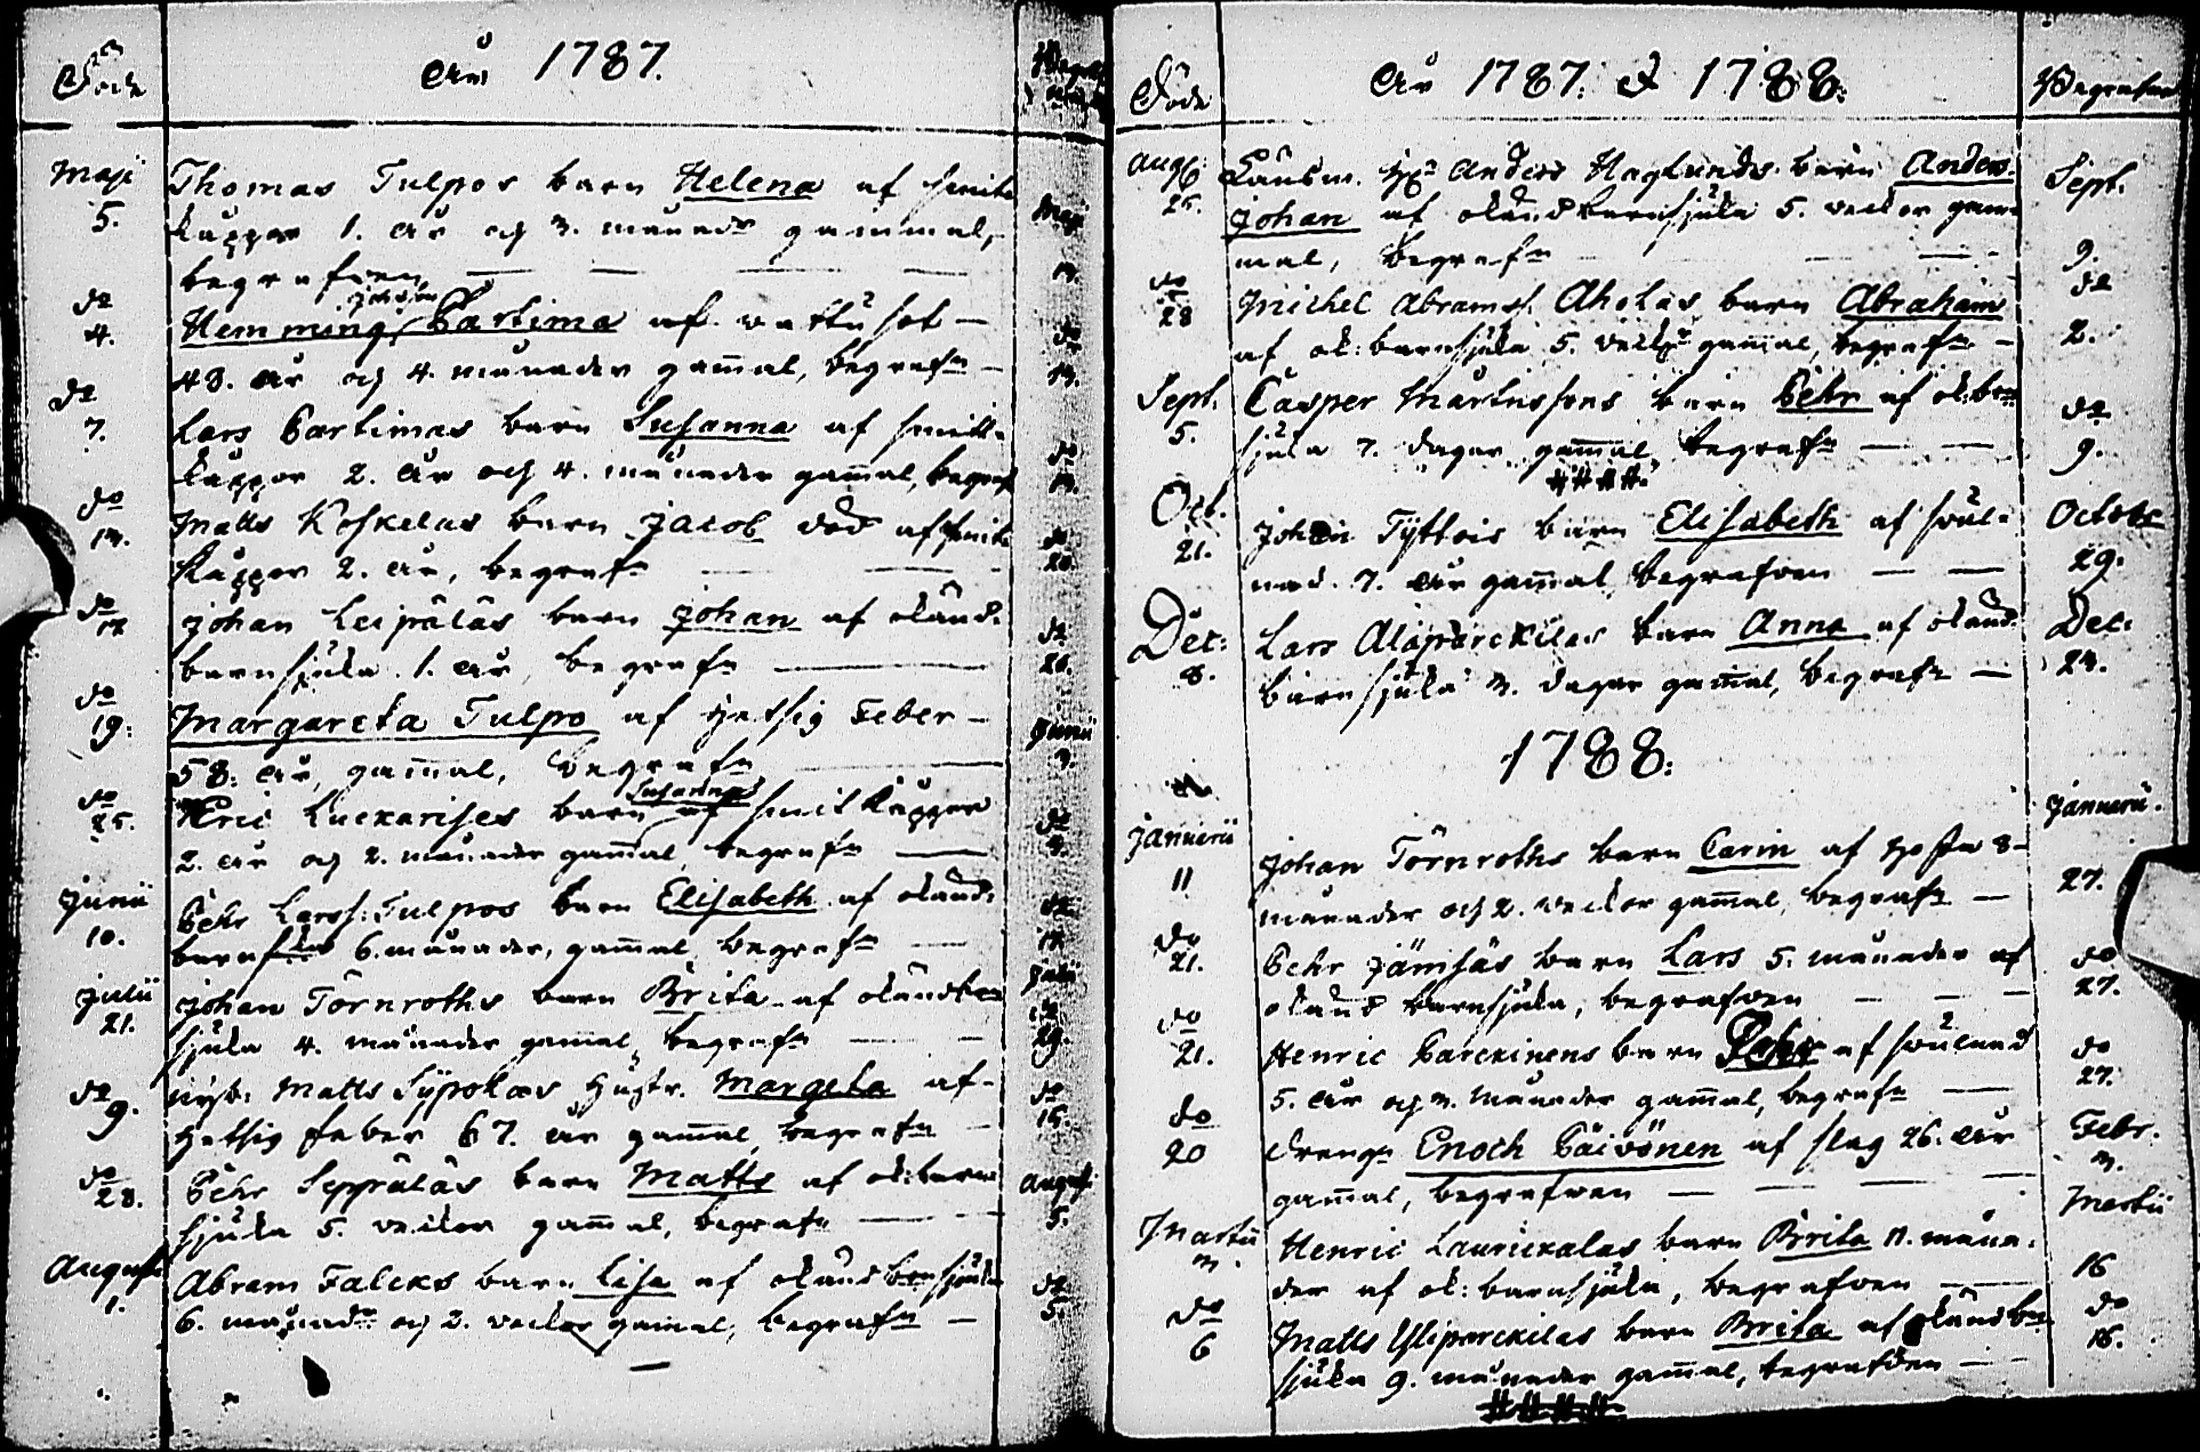 Döde
År 1787.
Maji 5. Thomas Tulpos barn Helena af smitt-
kåppor 1. år och 3. månadr gammal,
begrafven
Maji 13.
do 4. Hemming Johsson Partima af vattusot
48. år och 4. månader gam̄al, begrafn
do 13.
do 7. Lars Partimas barn Susanna af smitt-
kåppor 2. år och 4. månader gam̄al, begraf
do 13.
do 13. Matts Koskelas barn Jacob död af smitt
kåppor 2. år, begrafn
do 20.
do 17 Johan Leipäläs barn Johan af okänd
barnsjuka 1. år, begrafn
do 26.
do 19. Margareta Tulpo af hetsig feber
58. år, gam̄al, begrafn
Junii 3.
do 25. Eric Luckarises barn Susanna af smitkåppor
2. år och 2. månader gam̄al, begrafn
do 3.
Junii 10. Pehr Larss: Tulpos barn Elisabeth af okänd
6. månader, gam̄al, begrafn
do 17
Julii 21. Johan Törnroths barn Brita af okändbarn
sjuka 4. månader gam̄al, begrafn
Julii 29.
do 9. nyb: Matts Sypolas hustr. Margeta af
hetsig feber 67. år gam̄al, begrafn
do 15.
do 28. Pehr Seppäläs barn Matts af ok: barn
sjuka 5. veckor gam̄al, begrafn
August 5.
August 1. Abram Falcks barn Lisa af okänd barnsjuka
6. månadr och 2. veckor gam̄al, begrafn
do 5.
Döde
År 1787. & 1788.
Begrafne
Aug: 25. Länsm. Hr Anders Haglunds barn Anders
Johan af okänd barnsjuka 5. veckor gam-
mal, begrafn
Sept. 9.
do 28 Michel Abramss. Aholas barn Abraham
af ok: barnsjuka 5. veckor gam̄al, begrafn
do 2.
Sept. 5. Casper Mårtinssons barn Pehr af ok: barn
sjuka 7. dagar gam̄al begrafn
do 9.
####
Oct. 21. Johan Tyttois barn Elisabeth af svul-
nad. 7. år gam̄al, begrafven
Octobr 29.
Dec: 8. Lars Alaparckilas barn Anna af okänd
barnsjuka 3. dagar gam̄al, begrafn
Dec. 24.
1788.
Januarii 11 Johan Törnroths barn Carin af hosta 8
månader och 2. veckor gam̄al, begrafn
Januarii. 27.
do 21. Pehr Jämsäs barn Lars 5. månader af
okänd barnsjuka, begrafven
do 27.
do 21. Henric Parckinens barn Pehr af svulnad
5. år och 3. månader gam̄al, begrafn
do 27.
do 20 Drengn Enoch Päivönen af slag 26. år
gam̄al, begrafven
Febr. 3.
Martii 3. Henric Laurickalas barn Brita 11. måna-
der af ok: barnsjuka, begrafven
Martii 16
do 6 Matts Yliparckilas barn Brita af okänd barn
sjuka 9. månader gam̄al, begrafven
do 16.
####